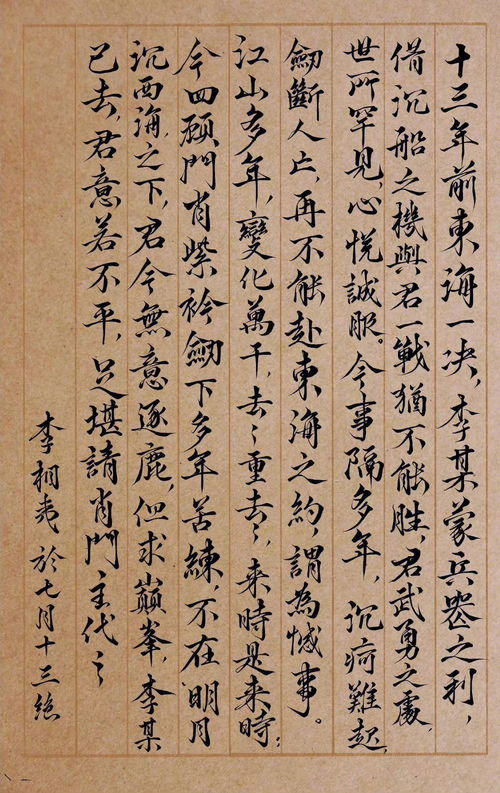 十三年前東海一决，李某蒙兵器之利，
借沉船之機與君一戰猶不能胜，君武勇之處，
世所罕見，心悦誠服。今事隔多年，沉疴難起，
劒斷人亡，再不能赴東海之約，謂為憾事。
江山多年，變化萬千，去〻重去〻，来時是来時；
今四顾門肖紫衿劒下多年苦練，不在明月
沉西海之下，君今無意逐鹿，但求巔峯，李某
已去，君意若不平，足堪請肖門主代〻
李相夷於七月十三絕